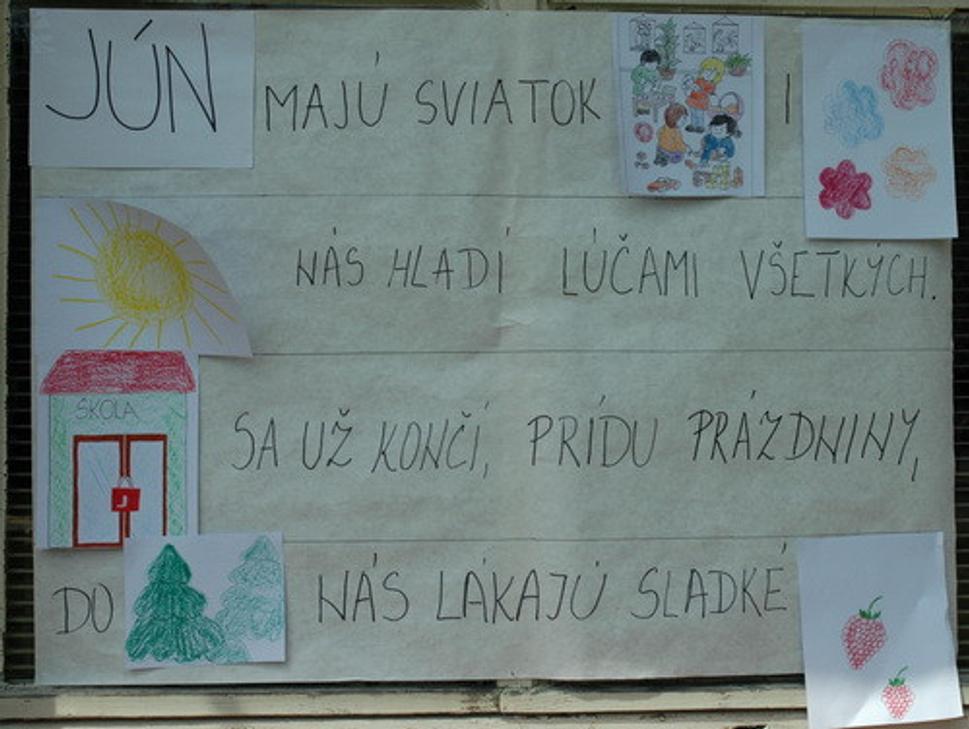 JÚN MAJÚ SVIATOK I
NÁS HLADÍ LÚČAMI VŠETKÝCH.
ŠKOLA
SA UŽ KONČÍ, PRÍDU PRÁZDNINY,
DO NÁS LÁKAJÚ SLADKÉ